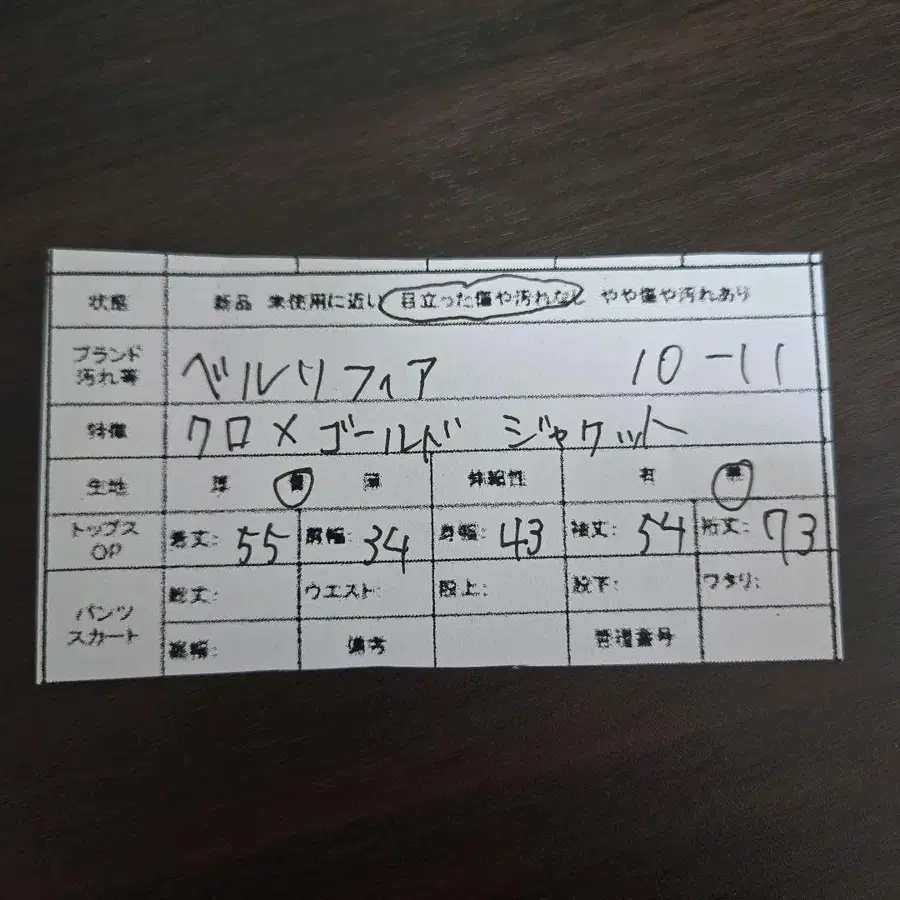 状態 新品 未使用に近い 目立った傷や汚れなし やや傷や汚れあり
ブランド
汚れ等 ベルリフィア 10-11
特徴 クロ×ゴールド ジャケット
生地 厚 普 薄 伸縮性 有 無
トップス
OP 着丈: 55 肩幅: 34 身幅: 43 袖丈: 54 裄丈: 73
パンツ
スカート 総丈: ウエスト: 股上: 股下: ワタリ:
裾幅: 備考 管理番号